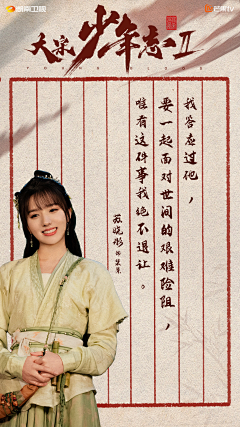 湖南卫视
芒果TV
大宋少年志II
我答应过他，
要一起面对世间的艰难险阻，
唯有这件事我绝不退让。
苏晓彤 饰 裴景